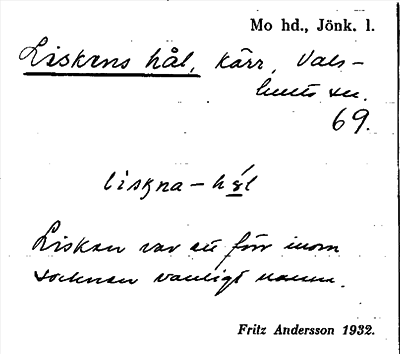 Mo hd., Jönk. l.
Liskens hål, kärr, Vals-
huts sn.
69.
liskna-hål
Liskan var ett förr inom
socknen vanligt namn.
Fritz Andersson 1932.